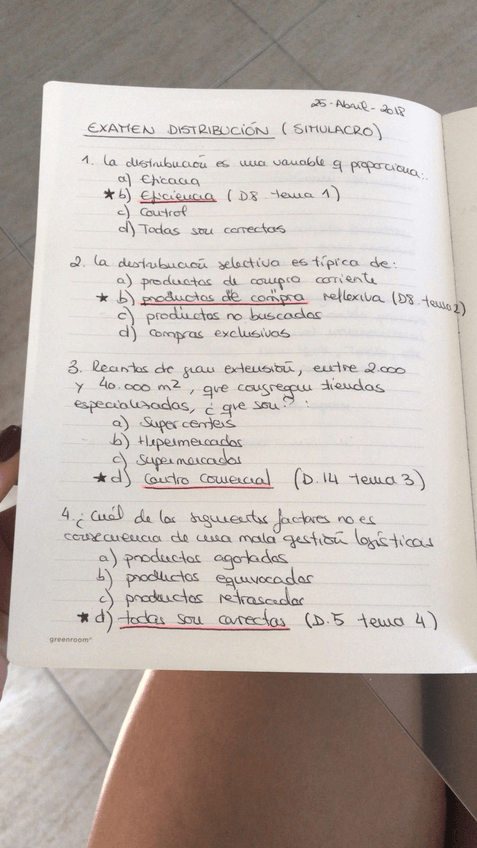 25-Abril-2018
EXAMEN DISTRIBUCIÓN (SIMULACRO)
1. La distribución es una variable q proporciona:
a) Eficacia
★ b) Eficiencia (D8. tema 1)
c) Control
d) Todas son correctas
2. La distribución selectiva es típica de:
a) productos de compra corriente
★ b) productos de compra reflexiva (D8. tema 2)
c) productos no buscados
d) compras exclusivas
3. Recintos de gran extensión, entre 2.000
y 40.000 m², que congregan tiendas
especializadas, ¿que son?:
a) Supercenters
b) Hipermercados
c) Supermercados
★ d) Centro Comercial (D.14 tema 3)
4. ¿Cuál de los siguientes factores no es
consecuencia de una mala gestión logísticas
a) productos agotados
b) productos equivocados
c) productos retrasados
★ d) todas son correctas (D.5 tema 4)
greenroom